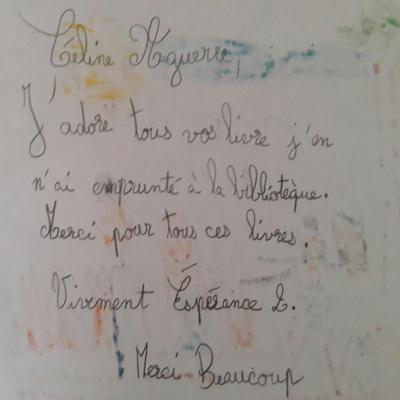 Céline Aguerre,
J'adore tous vos livre j'en
n'ai emprunté à la bibliotèque.
Merci pour tous ces livres.
Vivement Éspérance 2.
Merci Beaucoup